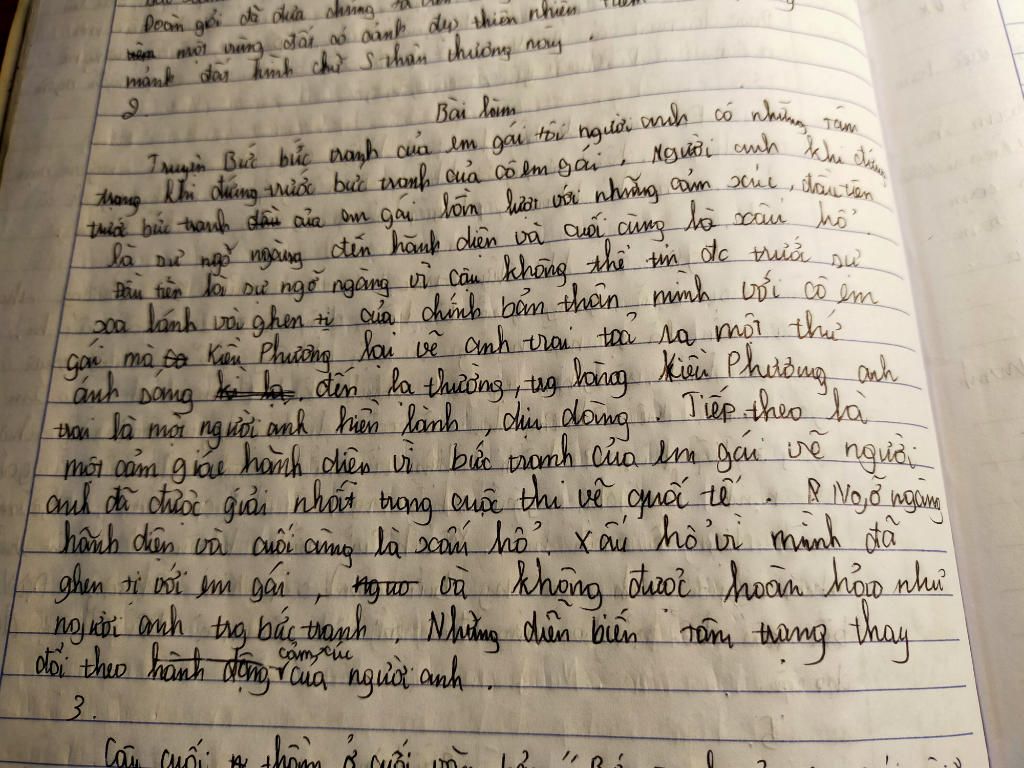 Đoàn giỏi đã đưa chúng ta
một vùng đất có cảnh đẹp thiên nhiên
mảnh đất hình chữ S thân thương này.
2. Bài làm
Truyện Bức bức tranh của em gái tôi người anh có những tâm
trạng khi đứng trước bức tranh của cô em gái. Người anh khi đứng
trước bức tranh đầu của em gái lần lượt với những cảm xúc, đầu tiên
là sự ngỡ ngàng đến hãnh diện và cuối cùng là xấu hổ.
Đầu tiên là sự ngỡ ngàng vì cậu không thể tin đc trước sự
xa lánh và ghen tị của chính bản thân mình với cô em
gái mà Kiều Phương lại vẽ anh trai toả ra một thứ
ánh sáng kì lạ, đến lạ thường, trg lòng Kiều Phương anh
trai là một người anh hiền lành, dịu dàng. Tiếp theo là
một cảm giác hãnh diện vì bức tranh của em gái vẽ người
anh đã được giải nhất trong cuộc thi vẽ quốc tế. Ngỡ ngàng
hãnh diện và cuối cùng là xấu hổ. Xấu hổ vì mình đã
ghen tị với em gái, và không được hoàn hảo như
người anh trg bức tranh. Những diễn biến tâm trạng thay
đổi theo hành động cảm xúc của người anh.
3.
Câu cuối thầm ở cuối